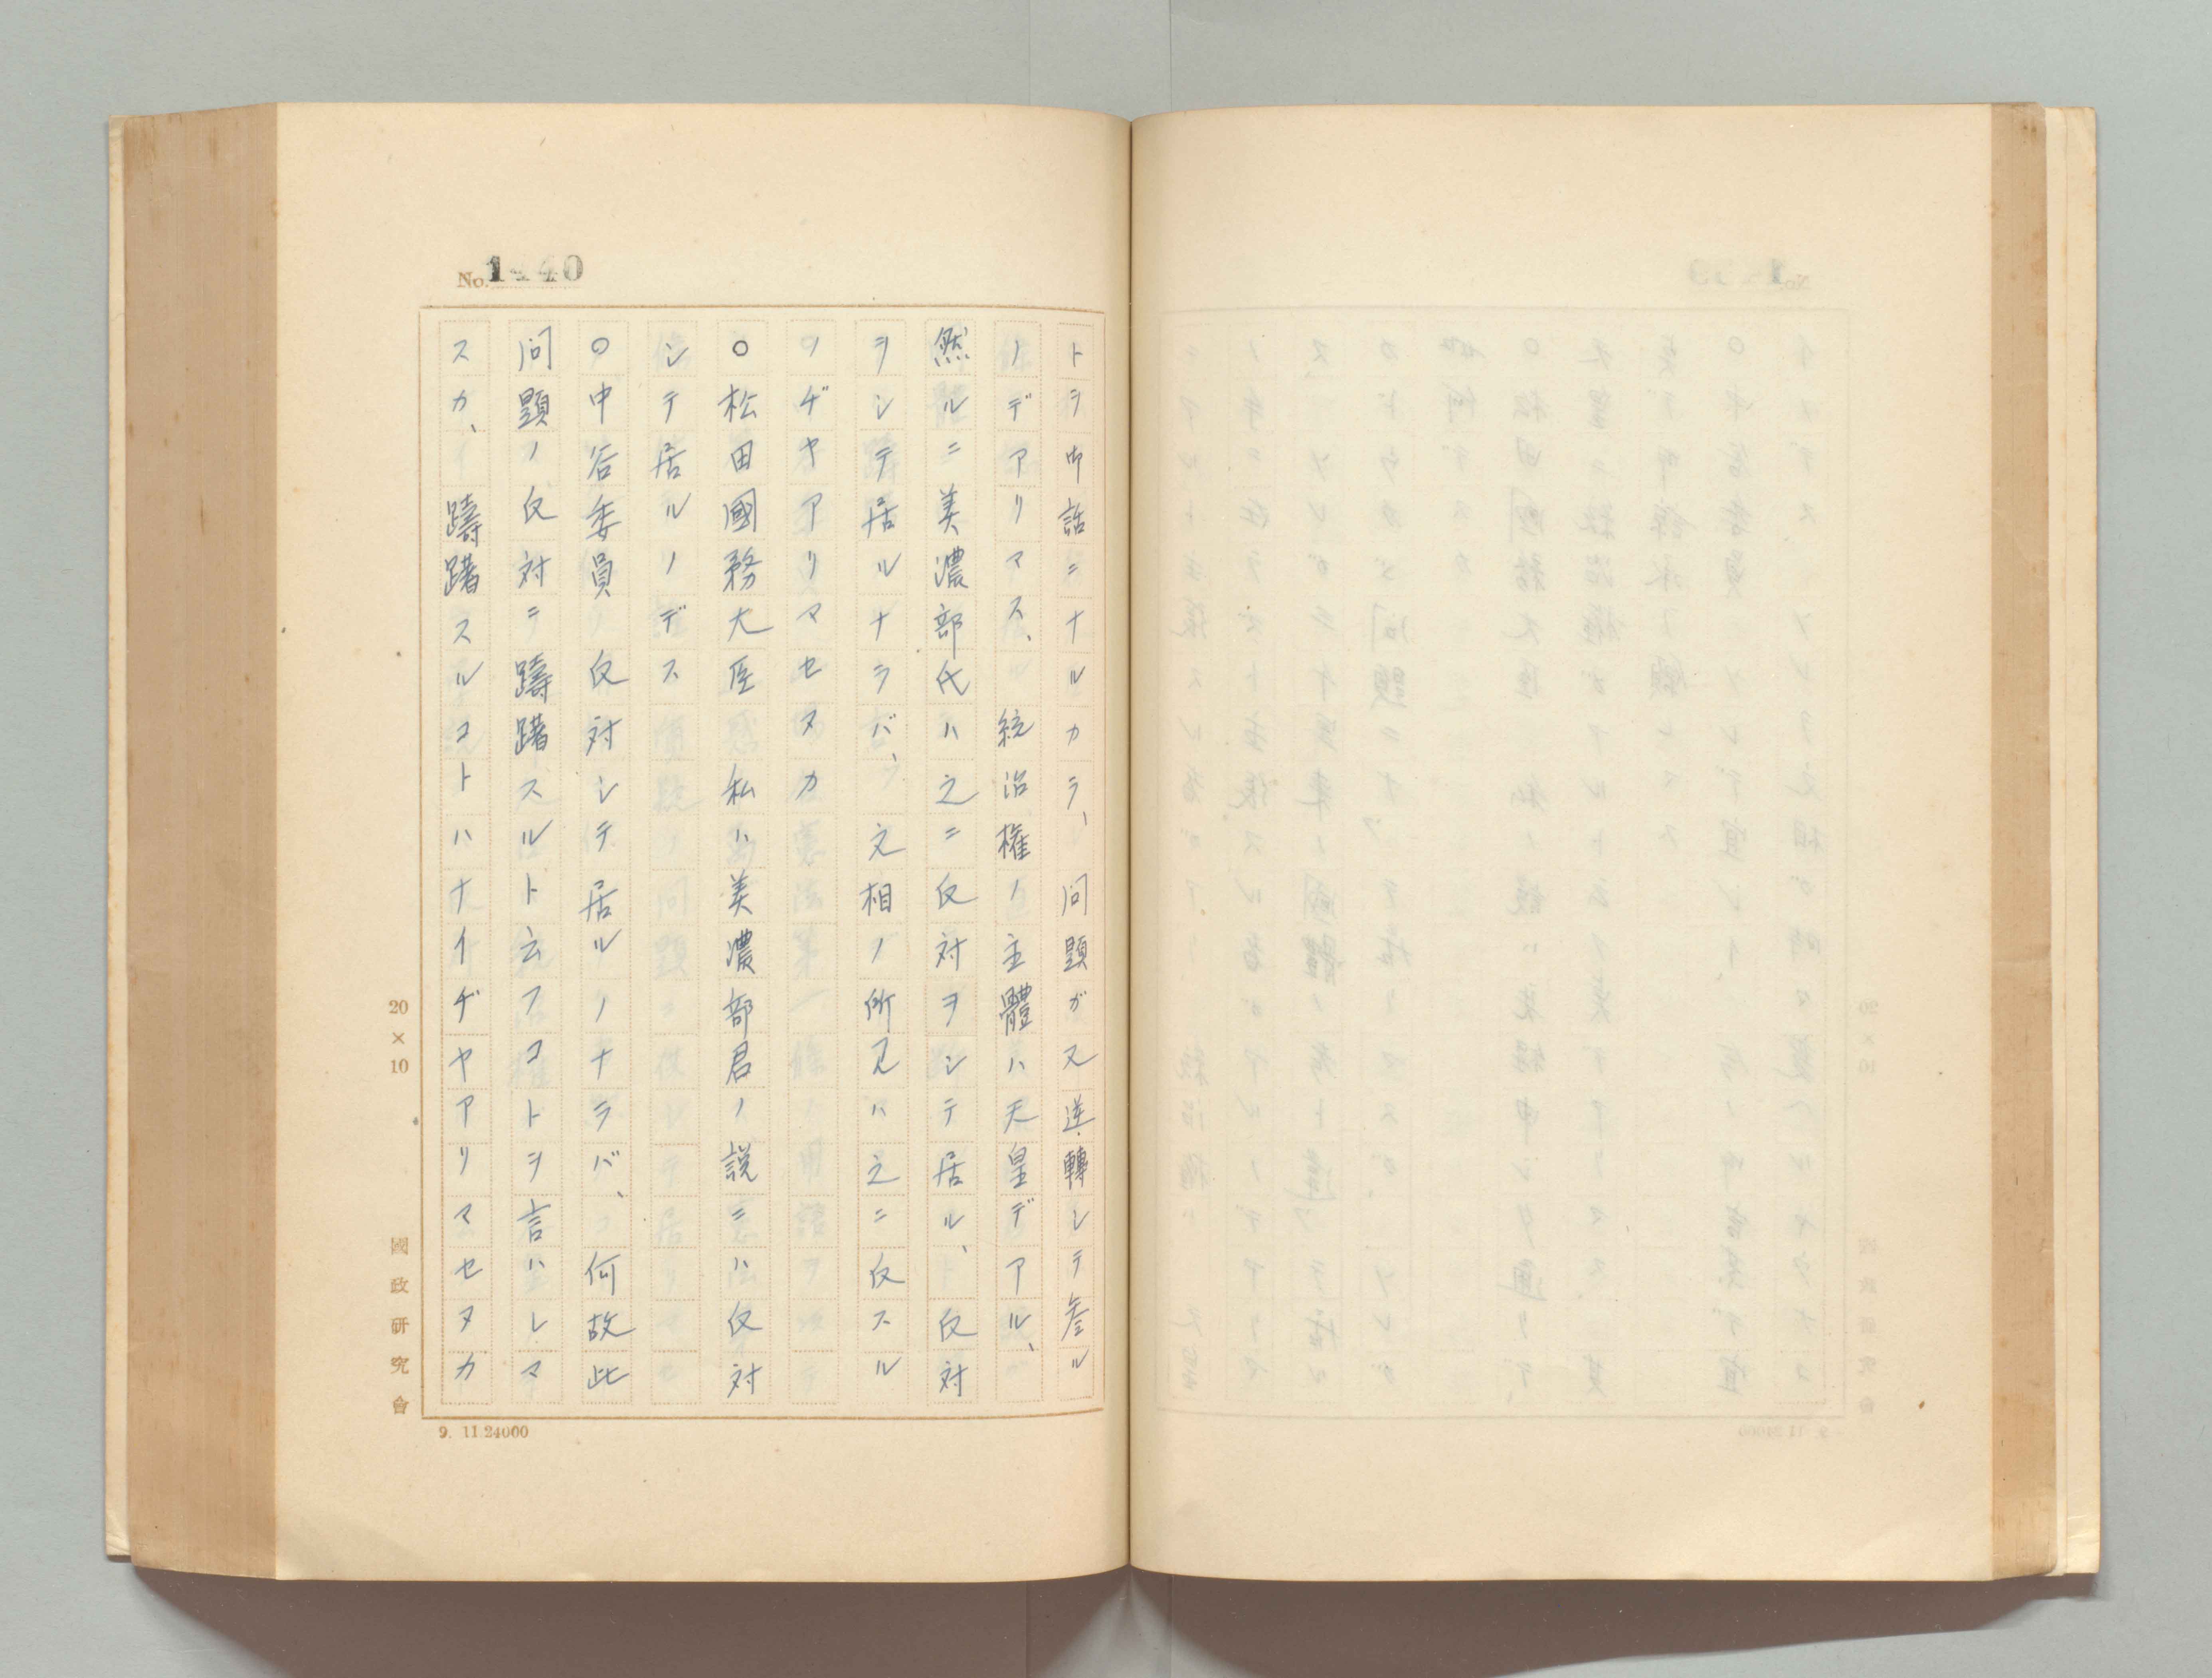 No. 1440
トヲ御話ニナルカラ、問題ガ又逆轉シテ參ル
ノデアリマス、統治權ノ主體ハ天皇デアル、
然ルニ美濃部氏ハ之ニ反対ヲシテ居ル、反対
ヲシテ居ルナラバ、文相ノ所見ハ之ニ反スル
ノヂヤアリマセヌカ
○松田國務大臣 私ハ美濃部君ノ説ニハ反対
シテ居ルノデス
○中谷委員 反対シテ居ルノナラバ、何故此
問題ノ反対ニ躊躇スルト云フコトヲ言ハレマ
スカ、躊躇スルコトハナイヂヤアリマセヌカ
20×10
國政研究會
9. 11.24000